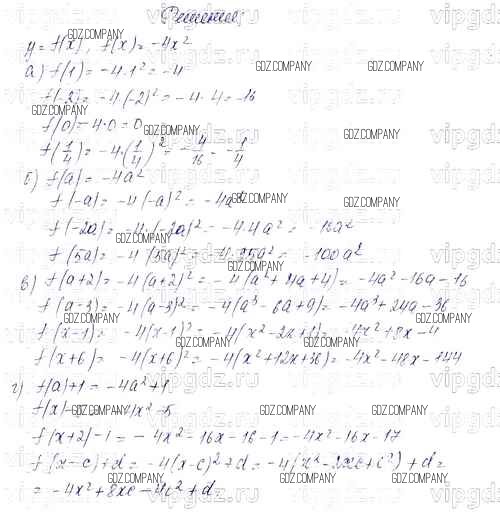 Решение:
y = f(x), f(x) = -4x²
а) f(1) = -4·1² = -4
f(-2) = -4(-2)² = -4·4 = -16
f(0) = -4·0 = 0
f(1/4) = -4·(1/4)² = -4/16 = -1/4
б) f(a) = -4a²
f(-a) = -4(-a)² = -4a²
f(-2a) = -4·(-2a)² = -4·4a² = -16a²
f(5a) = -4(5a)² = -4·25a² = -100a²
в) f(a+2) = -4(a+2)² = -4(a²+4a+4) = -4a²-16a-16
f(a-3) = -4(a-3)² = -4(a²-6a+9) = -4a²+24a-36
f(x-1) = -4(x-1)² = -4(x²-2x+1) = -4x²+8x-4
f(x+6) = -4(x+6)² = -4(x²+12x+36) = -4x²-48x-144
г) f(a)+1 = -4a²+1
f(x) -4x²-5
f(x+2)-1 = -4x²-16x-16-1 = -4x²-16x-17
f(x-c)+d = -4(x-c)²+d = -4(x²-2xc+c²)+d =
= -4x²+8xc-4c²+d
GDZ.COMPANY
vipgdz.ru